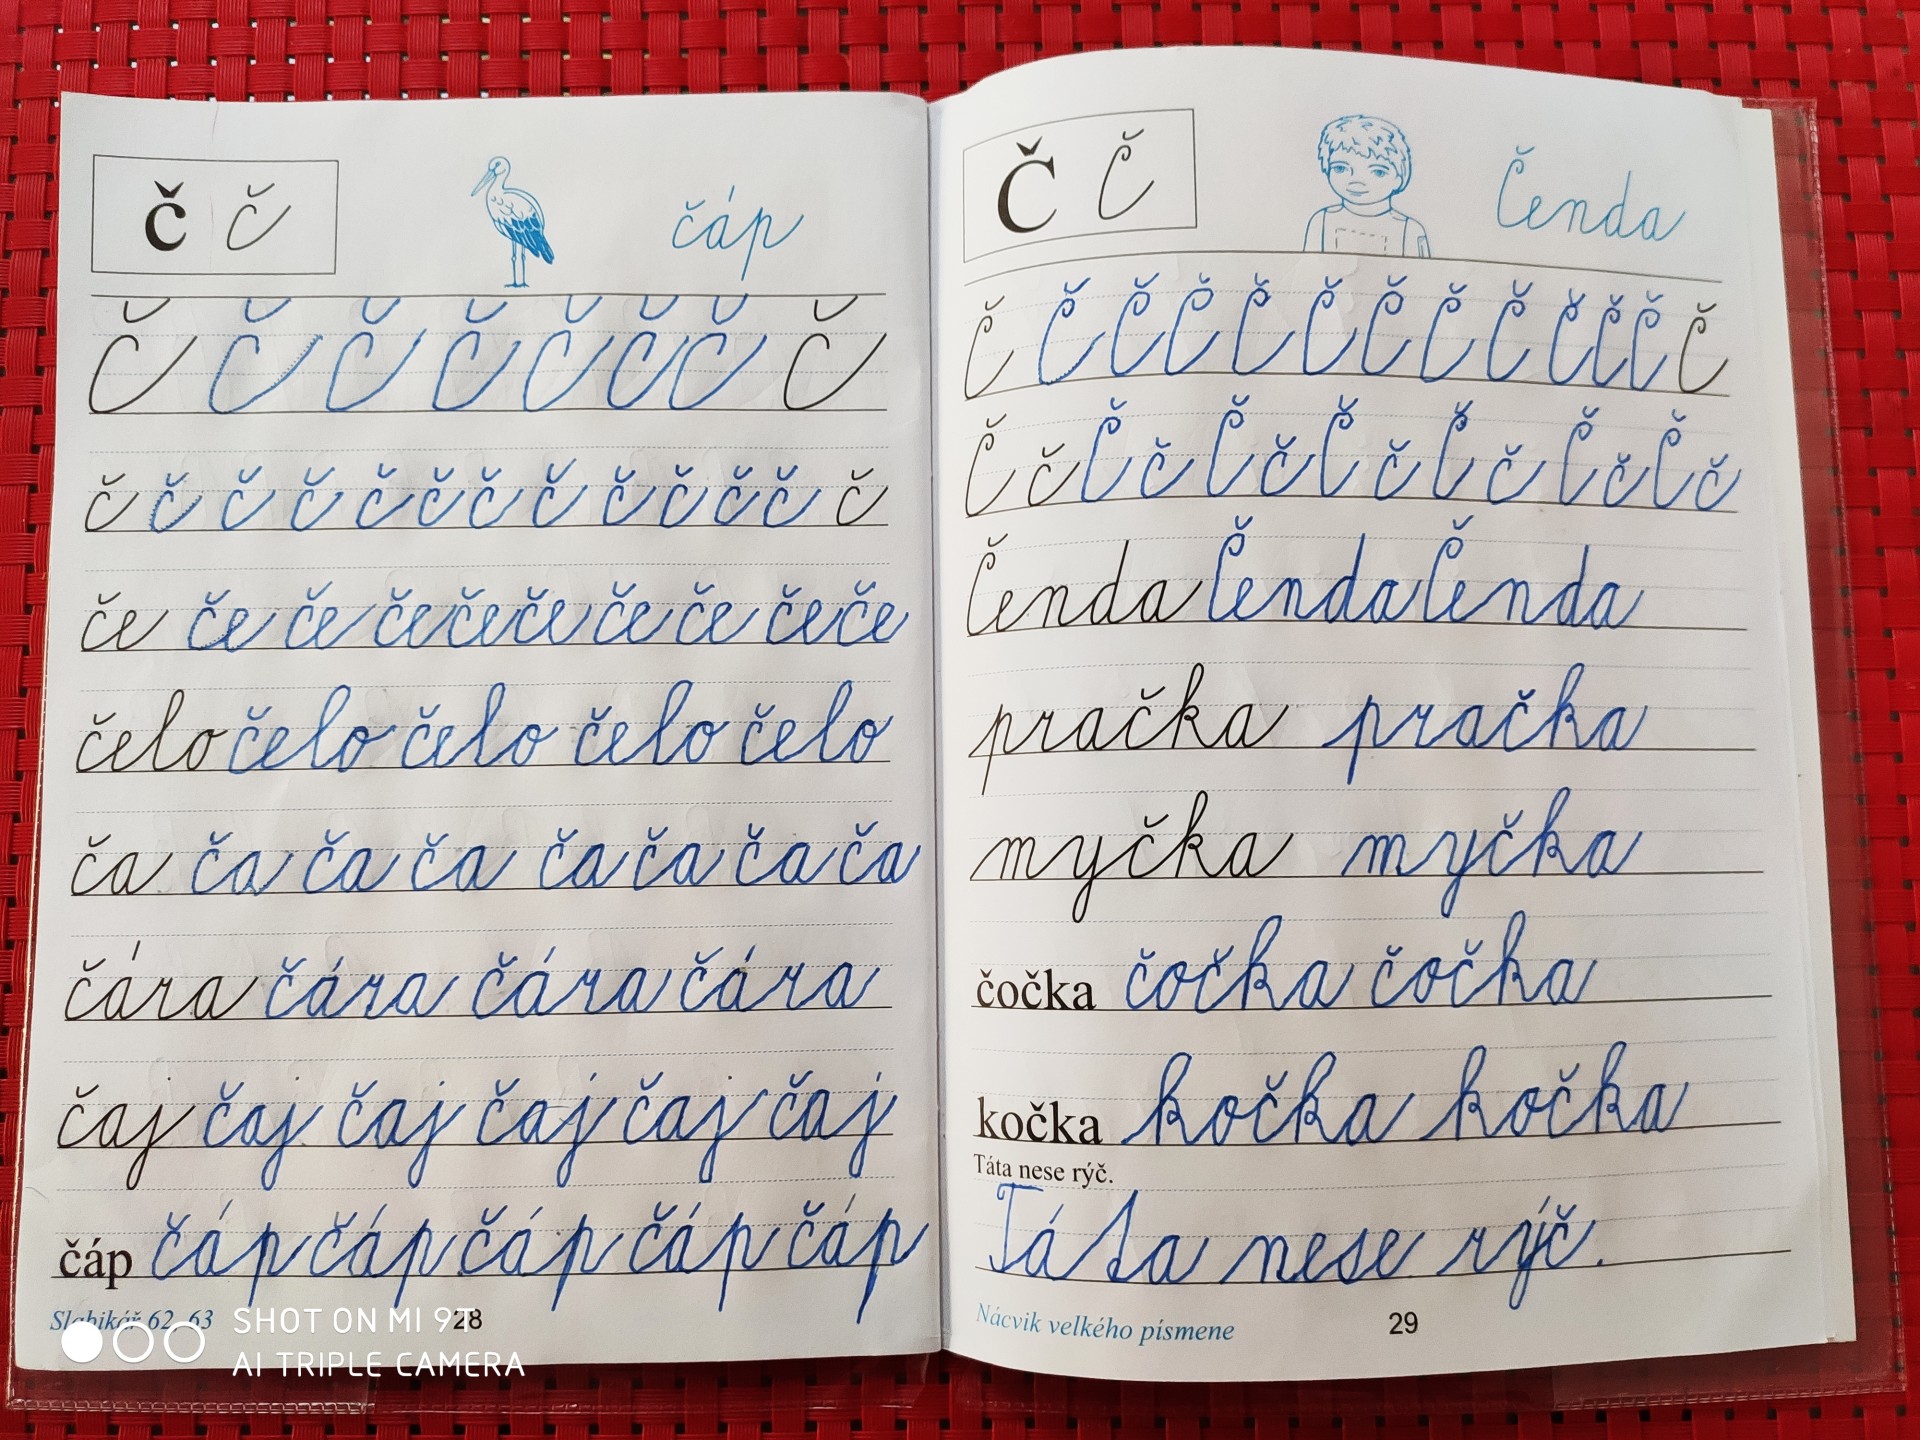 č č čáp
č č č č č č č č
č č č č č č č č č č č č č
če če če če če če če če če če
čelo čelo čelo čelo čelo
ča ča ča ča ča ča ča ča
čára čára čára čára
čaj čaj čaj čaj čaj čaj
čáp čáp čáp čáp čáp čáp
Slabikář 62, 63 28
SHOT ON MI 9T
AI TRIPLE CAMERA
Č Č Čenda
Č Č Č Č Č Č Č Č Č Č Č Č Č
Č č Č č Č č Č č Č č Č č Č č
Čenda Čenda Čenda
pračka pračka
myčka myčka
čočka čočka čočka
kočka kočka kočka
Táta nese rýč.
Táta nese rýč.
Nácvik velkého písmene 29